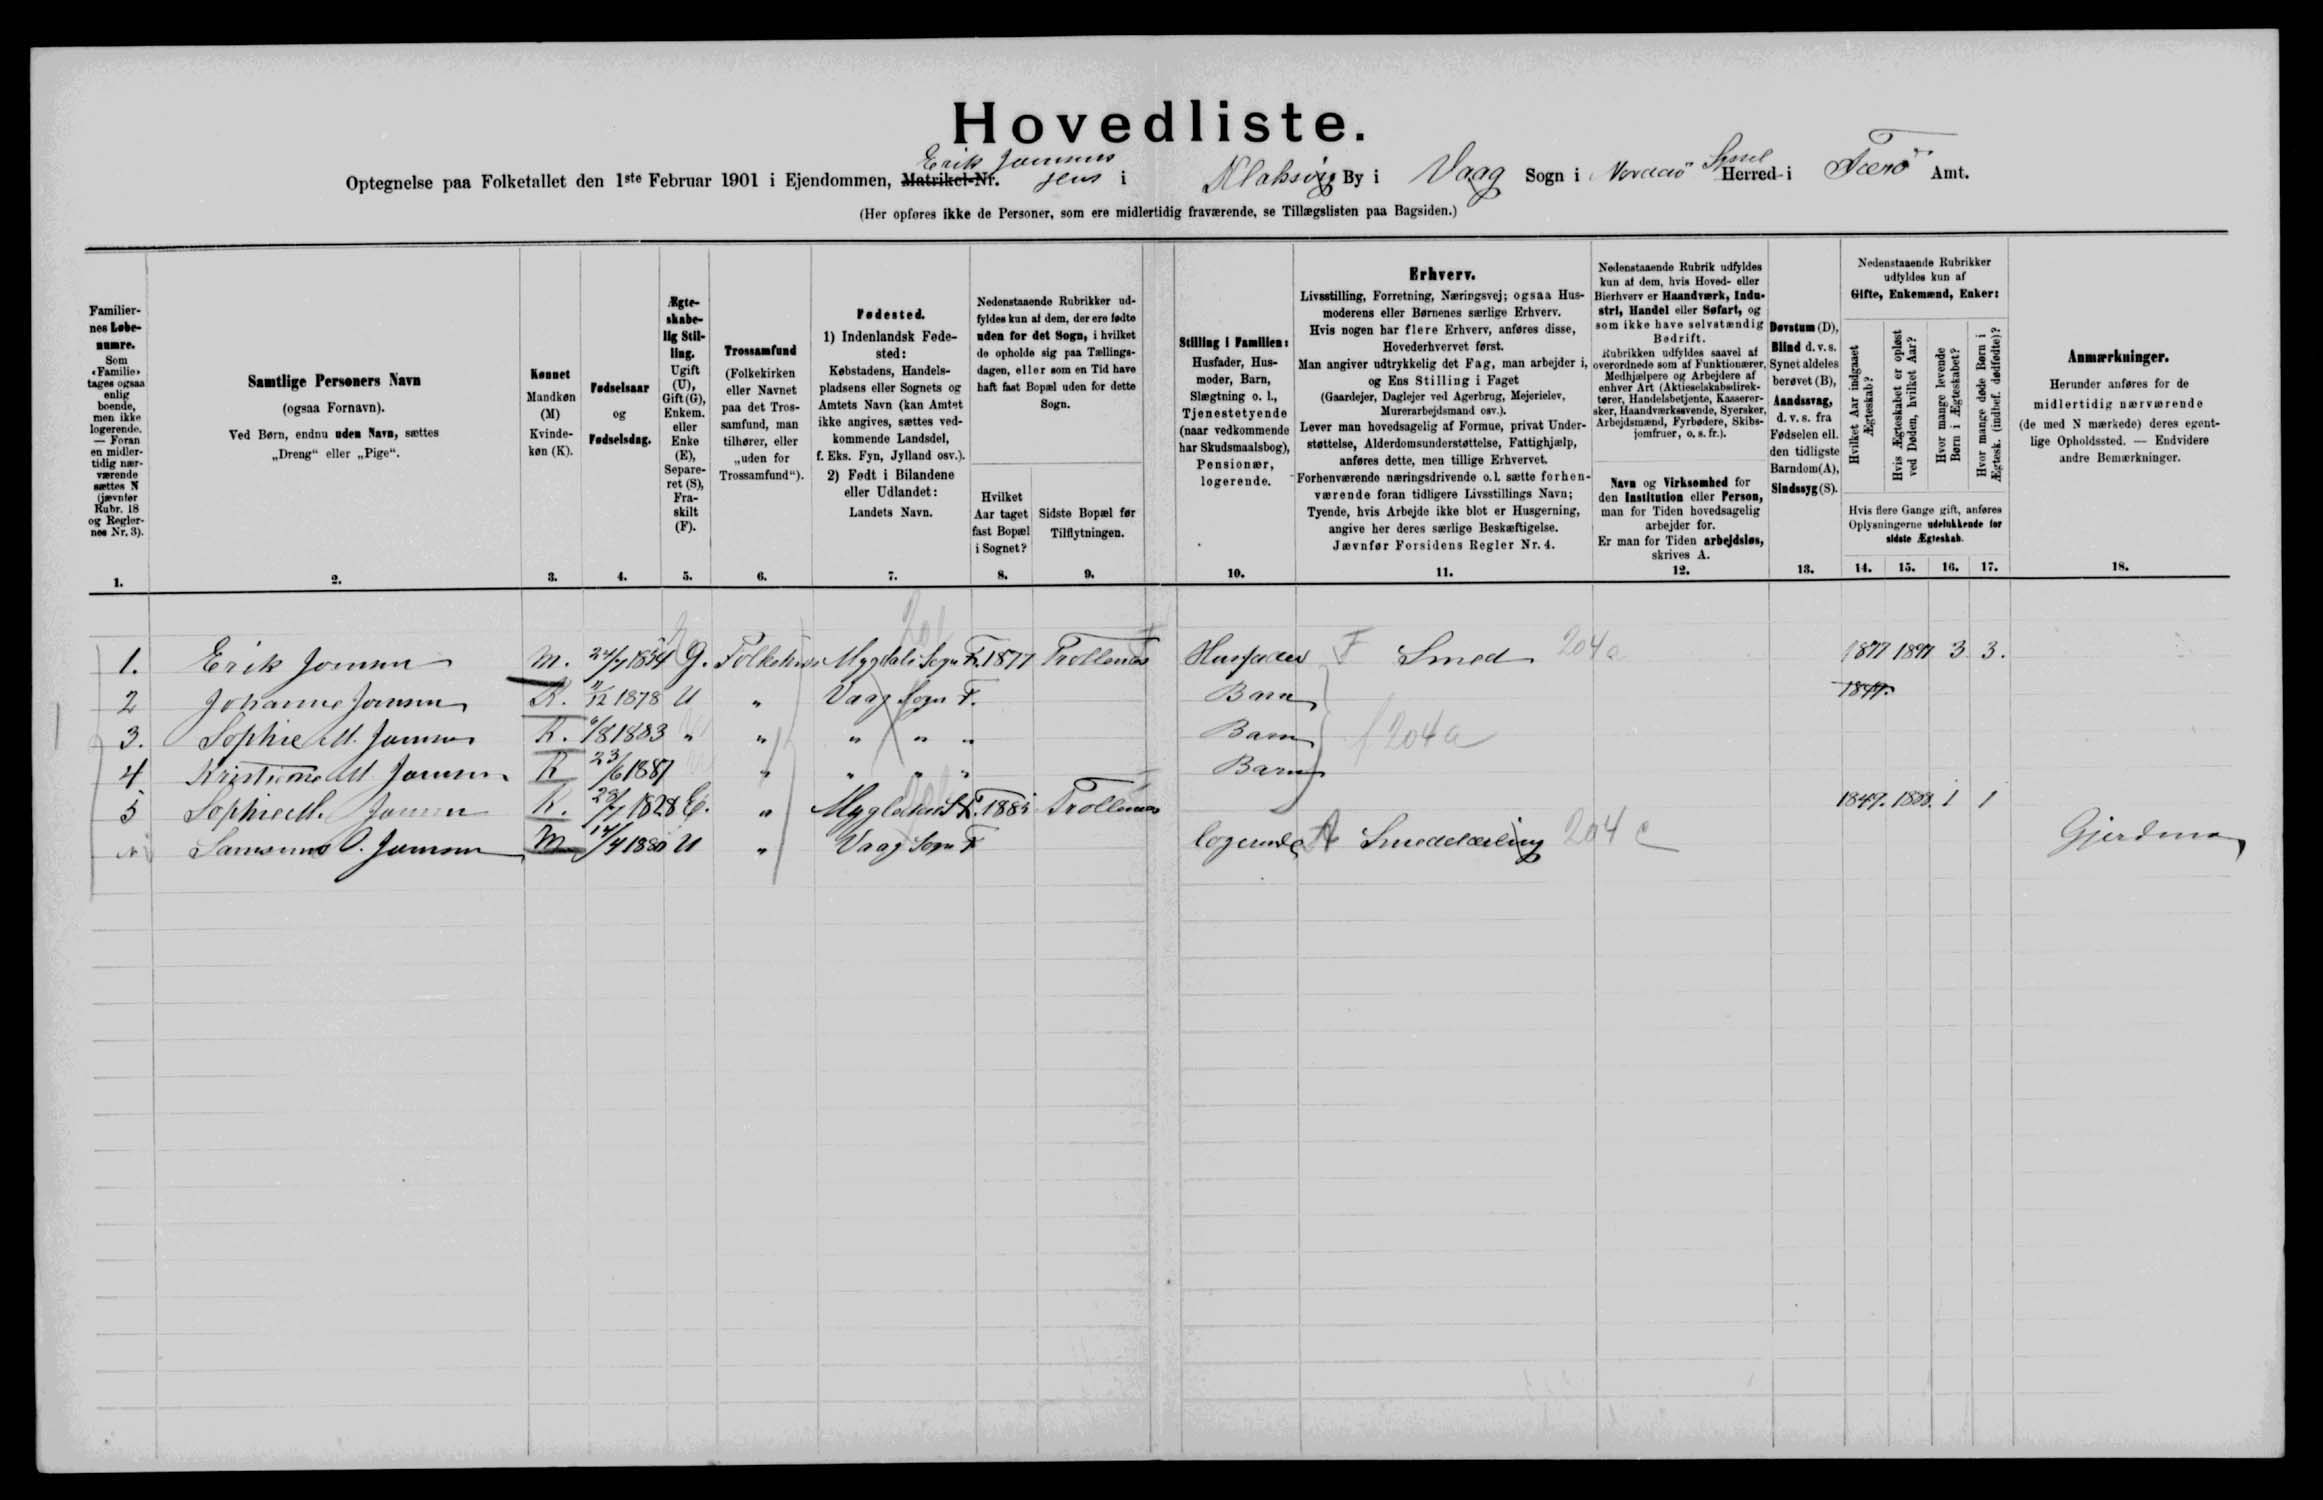 Hovedliste.
Erik Joensens
Optegnelse paa Folketallet den 1ste Februar 1901 i Ejendommen, Matrikel-Nr. Hus i Klaksvig By i Vaag Sogn i Norderø Syssel Herred i Færø Amt.
(Her opføres ikke de Personer, som ere midlertidig fraværende, se Tillægslisten paa Bagsiden.)
Familiernes Løbenumre.
Som «Familie» tages ogsaa enlig boende, men ikke logerende. — Foran en midlertidig nærværende sættes N (jævnfør Rubr. 18 og Reglernes Nr. 3).
Samtlige Personers Navn
(ogsaa Fornavn).
Ved Børn, endnu uden Navn, sættes
„Dreng“ eller „Pige“.
Kønnet
Mandkøn (M)
Kvindekøn (K).
Fødselsaar
og
Fødselsdag.
Ægteskabelig Stilling.
Ugift (U), Gift (G), Enkem. eller Enke (E), Separeret (S), Fraskilt (F).
Trossamfund
(Folkekirken eller Navnet paa det Trossamfund, man tilhører, eller „uden for Trossamfund“).
Fødested.
1) Indenlandsk Fødested:
Købstadens, Handelspladsens eller Sognets og Amtets Navn (kan Amtet ikke angives, sættes vedkommende Landsdel, f. Eks. Fyn, Jylland osv.).
2) Født i Bilandene eller Udlandet:
Landets Navn.
Nedenstaaende Rubrikker udfyldes kun af dem, der ere fødte uden for det Sogn, i hvilket de opholde sig paa Tællingsdagen, eller som en Tid have haft fast Bopæl uden for dette Sogn.
Hvilket Aar taget fast Bopæl i Sognet?
Sidste Bopæl før Tilflytningen.
Stilling i Familien:
Husfader, Husmoder, Barn, Slægtning o. l., Tjenestetyende (naar vedkommende har Skudsmaalsbog), Pensionær, logerende.
Erhverv.
Livsstilling, Forretning, Næringsvej; ogsaa Husmoderens eller Børnenes særlige Erhverv.
Hvis nogen har flere Erhverv, anføres disse, Hovederhvervet først.
Man angiver udtrykkelig det Fag, man arbejder i, og Ens Stilling i Faget
(Gaardejer, Daglejer ved Agerbrug, Mejerielev, Murerarbejdsmand osv.).
Lever man hovedsagelig af Formue, privat Understøttelse, Alderdomsunderstøttelse, Fattighjælp, anføres dette, men tillige Erhvervet.
Forhenværende næringsdrivende o. l. sætte forhenværende foran tidligere Livsstillings Navn;
Tyende, hvis Arbejde ikke blot er Husgerning, angive her deres særlige Beskæftigelse.
Jævnfør Forsidens Regler Nr. 4.
Nedenstaaende Rubrik udfyldes kun af dem, hvis Hoved- eller Bierhverv er Haandværk, Industri, Handel eller Søfart, og som ikke have selvstændig Bedrift.
Rubrikken udfyldes saavel af overordnede som af Funktionærer, Medhjælpere og Arbejdere af enhver Art (Aktieselskabsdirektører, Handelsbetjente, Kasserersker, Haandværkssvende, Syersker, Arbejdsmænd, Fyrbødere, Skibsjomfruer, o. s. fr.).
Navn og Virksomhed for den Institution eller Person, man for Tiden hovedsagelig arbejder for.
Er man for Tiden arbejdsløs, skrives A.
Døvstum (D), Blind d. v. s. Synet aldeles berøvet (B), Aandssvag, d. v. s. fra Fødselen ell. den tidligste Barndom (A), Sindssyg (S).
Nedenstaaende Rubrikker udfyldes kun af
Gifte, Enkemænd, Enker:
Hvilket Aar indgaaet Ægteskab?
Hvis Ægteskabet er opløst ved Døden, hvilket Aar?
Hvor mange levende Børn i Ægteskabet?
Hvor mange døde Børn i Ægtesk. (indbef. dødfødte)?
Hvis flere Gange gift, anføres Oplysningerne udelukkende for sidste Ægteskab.
Anmærkninger.
Herunder anføres for de midlertidig nærværende (de med N mærkede) deres egentlige Opholdssted. — Endvidere andre Bemærkninger.
1. 2. 3. 4. 5. 6. 7. 8. 9. 10. 11. 12. 13. 14. 15. 16. 17. 18.
1. Erik Joensen M. 24/7 1854 G. Folkekirken Sogn F. 1877 Trollenæs Husfader F Smed 204a 1877 1897 3 3.
2 Johanne Joensen K. 1878 U „ Vaag Sogn F. Barn 1877.
3. Sophie M. Joensen K. 6/8 1883 „ „ „ „ „ Barn f 204a
4 Kristiane M Joensen K 23/6 1887 „ „ „ „ Barn
5 Sophie M. Joensen K. 1828 E. „ F. 1885 Trollenæs 1847. 1 1
N Samsuns O. Joensen M 14/4 1880 U „ Vaag Sogn F logerende A Smedelærling 204 c